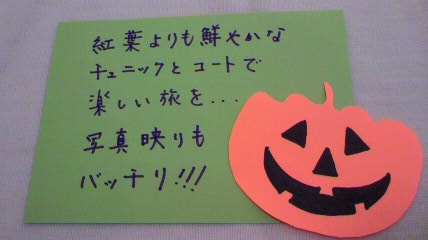 紅葉よりも鮮やかな
チュニックとコートで
楽しい旅を...
写真映りも
バッチリ!!!